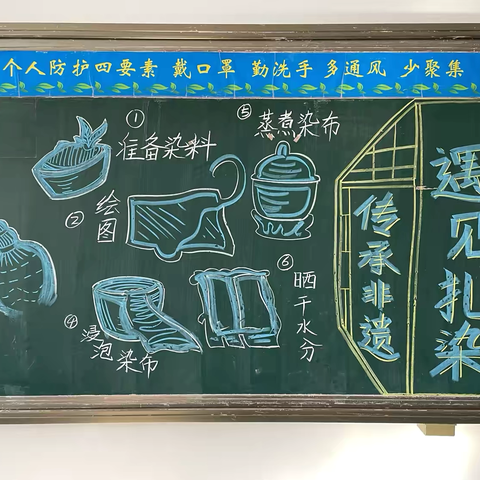 个人防护四要素 戴口罩 勤洗手 多通风 少聚集
①
准备染料
②
绘图
④
浸泡染布
⑤
蒸煮染布
⑥
晒干水分
传承非遗
遇见扎染